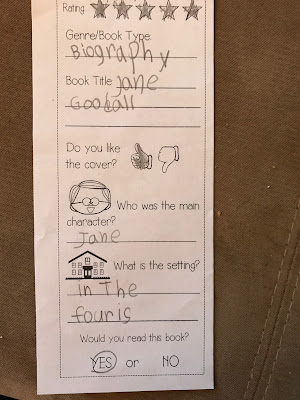 Rating
Genre/Book Type:
Biography
Book Title Jane
Goodall
Do you like
the cover?
Who was the main
character?
Jane
What is the setting?
in The
fouris
Would you read this book?
YES or NO